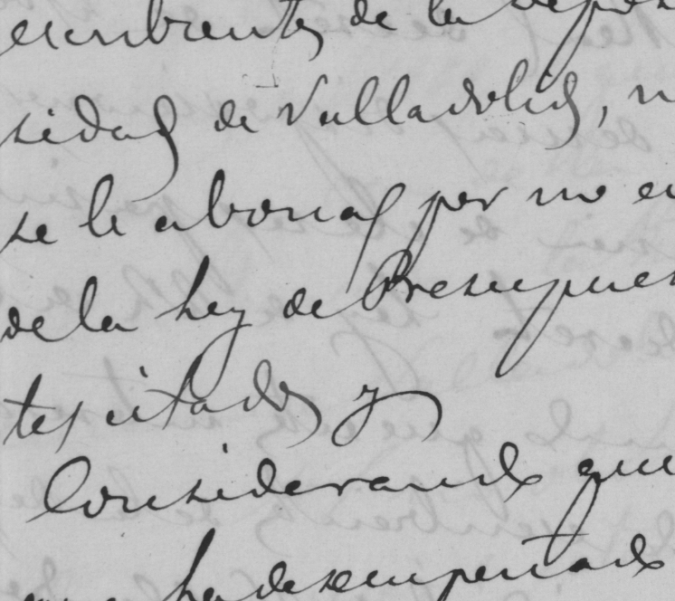 escribiente de la
sidad de Valladolid,
se le abonas por no
de la Ley de Presupues
tes citados y
Considerando que
ha desempeñado